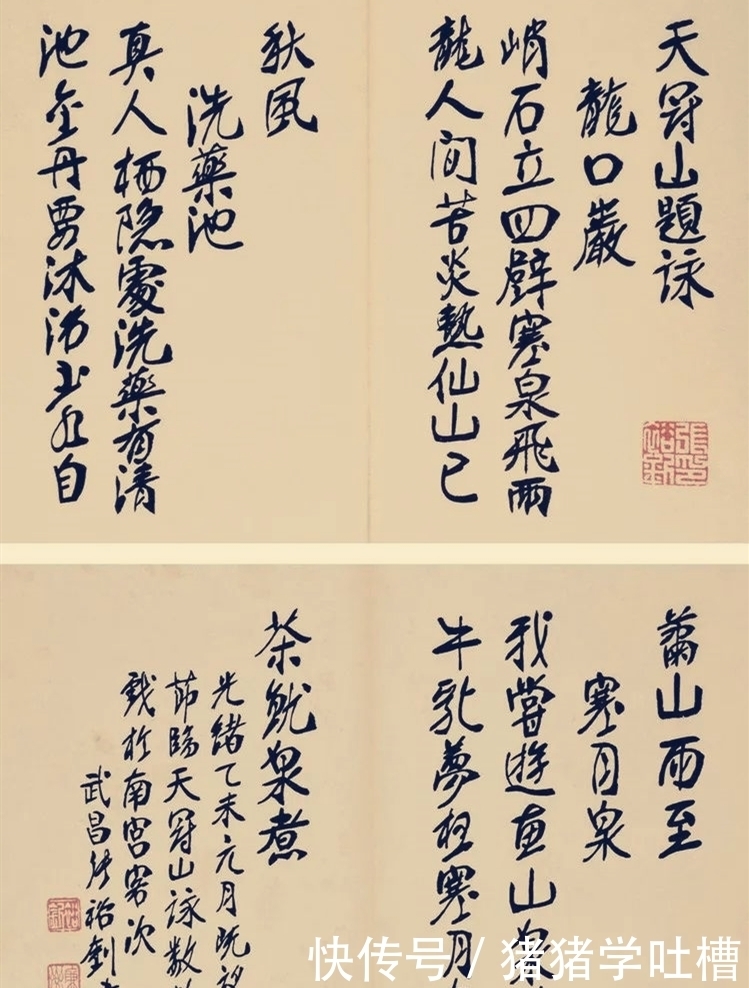 天冠山題詠
龍口巖
峭石立四壁寒泉飛兩
龍人間苦炎熱仙山已
秋風
洗藥池
真人栖隱處洗藥有清
池金丹要沐浴玉水自
山雨至
寒月泉
我嘗遊惠山泉
牛乳夢想寒月
茶就泉煮
光緒乙未元月既望
節臨天冠山詠數
戲於南宮客次
武昌張裕釗
快传号 / 猪猪学吐槽